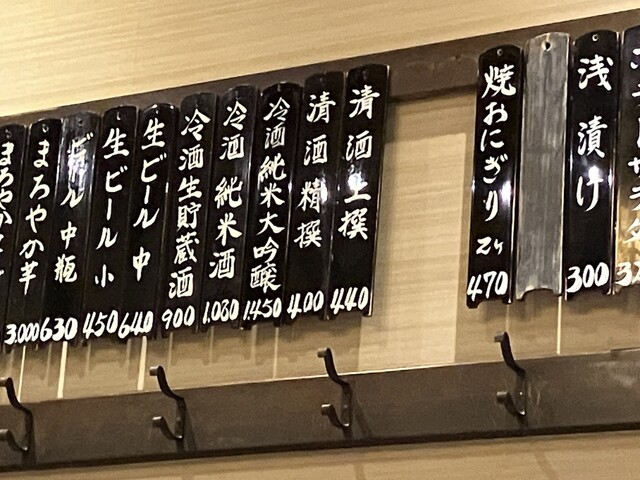 浅漬け 300
焼おにぎり 2ヶ 470
清酒上撰 440
清酒精撰 400
冷酒純米大吟醸 1.450
冷酒純米酒 1.080
冷酒生貯蔵酒 900
生ビール中 640
生ビール小 450
ビール中瓶 630
まろやか芋 3.000
まろやか